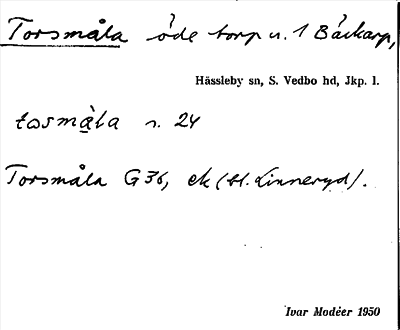 Torsmåla öde torp u. 1 Bäckarp,
Hässleby sn, S. Vedbo hd, Jkp. l.
tosmàla s. 24
Torsmåla G 36, ek (bl. Linneryd).
Ivar Modéer 1950